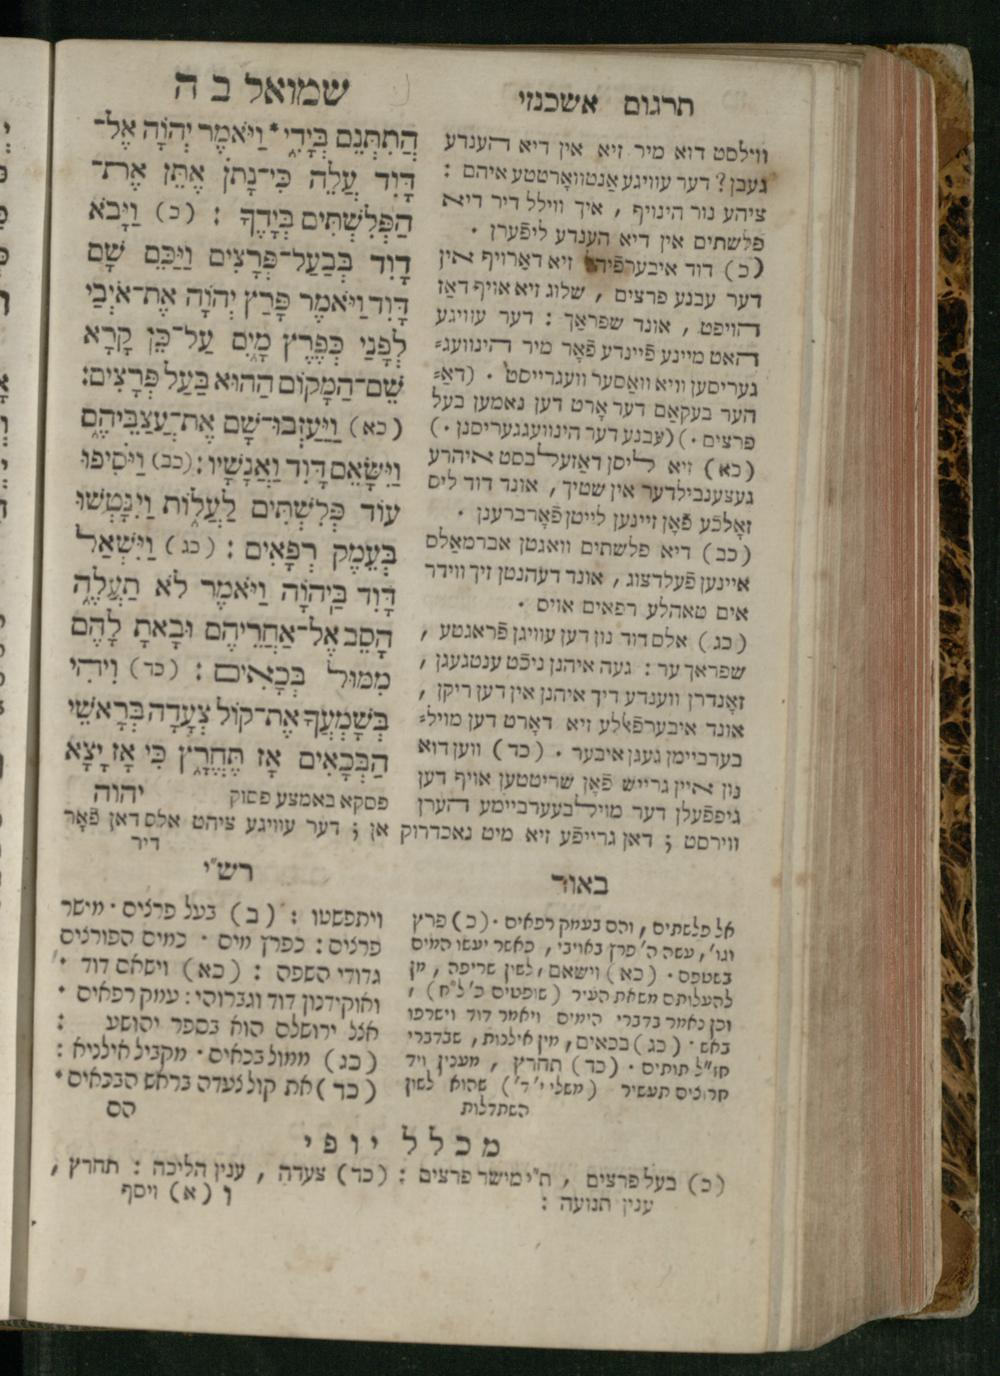 שמואל ב ה
הֲתִתְּנֵם בְּיָדִי* וַיֹּאמֶר יְהֹוָה אֶל־
דָּוִד עֲלֵה כִּי־נָתֹן אֶתֵּן אֶת־
הַפְּלִשְׁתִּים בְּיָדֶךָ : (כ) וַיָּבֹא
דָוִד בְּבַעַל־פְּרָצִים וַיַּכֵּם שָׁם
דָּוִד וַיֹּאמֶר פָּרַץ יְהֹוָה אֶת־אֹיְבַי
לְפָנַי כְּפֶרֶץ מָיִם עַל־כֵּן קָרָא
שֵׁם־הַמָּקוֹם הַהוּא בַּעַל פְּרָצִים:
(כא) וַיַּעַזְבוּ־שָׁם אֶת־עֲצַבֵּיהֶם
וַיִּשָּׂאֵם דָּוִד וַאֲנָשָׁיו: (כב) וַיֹּסִיפוּ
עוֹד פְּלִשְׁתִּים לַעֲלוֹת וַיִּנָּטְשׁוּ
בְּעֵמֶק רְפָאִים : (כג) וַיִּשְׁאַל
דָּוִד בַּיהֹוָה וַיֹּאמֶר לֹא תַעֲלֶה
הָסֵב אֶל־אַחֲרֵיהֶם וּבָאתָ לָהֶם
מִמּוּל בְּכָאִים : (כד) וִיהִי
בְּשָׁמְעֲךָ אֶת־קוֹל צְעָדָה בְּרָאשֵׁי
הַבְּכָאִים אָז תֶּחֱרָץ כִּי אָז יָצָא
פסקא באמצע פסוק יהוה
תרגום אשכנזי
ווילסט דוא מיר זיא אין דיא הענדע
געבן? דער עוויגע אַנטוואָרטטע איהם :
ציהע נור הינויף , איך ווילל דיר דיא
פלשתים אין דיא הענדע ליפֿערן .
(כ) דוד איבערפֿיהל זיא דארויף אין
דער עבנע פרצים , שלוג זיא אויף דאז
הויפט , אונד שפראַך : דער עוויגע
האט מיינע פֿיינדע פֿאָר מיר הינוועג=
געריסען וויא וואַסער וועגרייסט . (דאַ=
הער בעקאַם דער אָרט דען נאמען בעל
פרצים .) (עבנע דער הינוועגגעריסנן .)
(כא) זיא ליסן דאַזעלבסט איהרע
געצענבילדער אין שטיך , אונד דוד ליס
זאָלכֿע פֿאָן זיינען לייטן פֿאָרברענן .
(כב) דיא פלשתים וואגטן אברמאַלס
איינען פֿעלדצוג , אונד דעהנטן זיך ווידר
אים טאהלע רפאים אויס .
(כג) אלס דוד נון דען עוויגן פֿראגטע ,
שפראך ער : געה איהנן ניכֿט ענטגעגן ,
זאָנדרן ווענדע דיך איהנן אין דען ריקן ,
אונד איבערפֿאַלע זיא דאָרט דען מויל=
בערביימן געגן איבער . (כד) ווען דוא
נון איין גרייש פֿאָן שריטטען אויף דען
גיפפֿעלן דער מוילבעערביימע הערן
ווירסט ; דאן גרייפֿע זיא מיט נאכדרוק אן ; דער עוויגע ציהט אלס דאן פֿאָר
דיר
באור
אל פלשתים , והם בעמק רפאים . (כ) פרץ
וגו' , עשה ה' פרץ באויבי , כאשר יעשו המים
בשטפם . (כא) וישאם , לשון שריפה , מן
להעלותם משאת העיר (שופטים כ' ל"ח) ,
וכן נאמר בדברי הימים ויאמר דוד וישרפו
באש . (כג) בכאים , מין אילנות , שבדברי
חז"ל תותים . (כד) תחרץ , מענין ויד
חרוצים תעשיר (משלי י' ד') שהוא לשון
השתדלות
רש"י
ויתפשטו : (ב) בעל פרצים . מישר
פרצים : כפרץ מים . כמים הפורצים
גדודי השפה : (כא) וישאם דוד .
ואוקידנון דוד וגברוהי : עמק רפאים .
אצל ירושלם הוא בספר יהושע :
(כג) ממול בכאים . מקביל אילניא :
(כד) את קול צעדה בראש הבכאים .
הם
מכלל יופי
(כ) בעל פרצים , ת"י מישר פרצים : (כד) צעדה , ענין הליכה : תחרץ ,
ענין תנועה : ו (א) ויסף